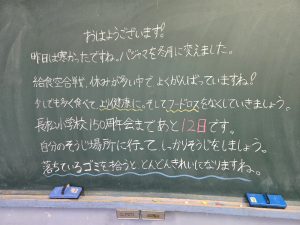 おはようございます!
昨日は寒かったですね。パジャマを冬用に変えました。
給食室合戦、休みが多い中でよくがんばっていますね!
少しでも多く食べて、より健康に。そしてフードロスをなくしていきましょう。
長松小学校150周年会まであと12日です。
自分のそうじ場所に行って、しっかりそうじをしましょう。
落ちているゴミを拾うと、どんどんきれいになりますね。